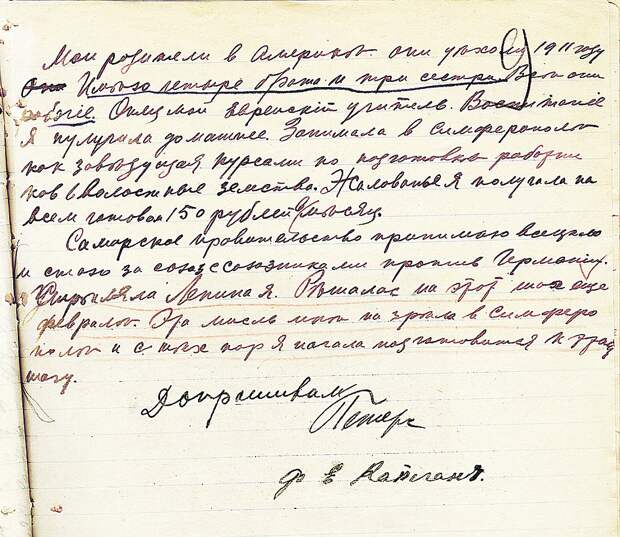 Мои родители в Америкѣ они уѣхали в 1911 году
Они Имѣю четыре брата и три сестри. Всѣ они
рабочіе. Отец мой Еврейскій учитель. Воспитаніе
я пулучила домашнее. Занимала в Симферополѣ
как завѣдущая курсами по подготовкѣ работни
ков в волостные земства. Жалованье я получала на
всем готовом 150 рублей в мѣсяц.
Самарское правительство принимаю всецело
и стою за союз с союзниками против Германіи.
Стрѣляла Ленина я. Рѣшалас на этот шаг еще
февралѣ. Эта мысль мнѣ назрѣла в Симферо
полѣ и с тѣх пор я начала подготовится к этому
шагу.
Допрашивал
Петерс
Ф Е Каплан.